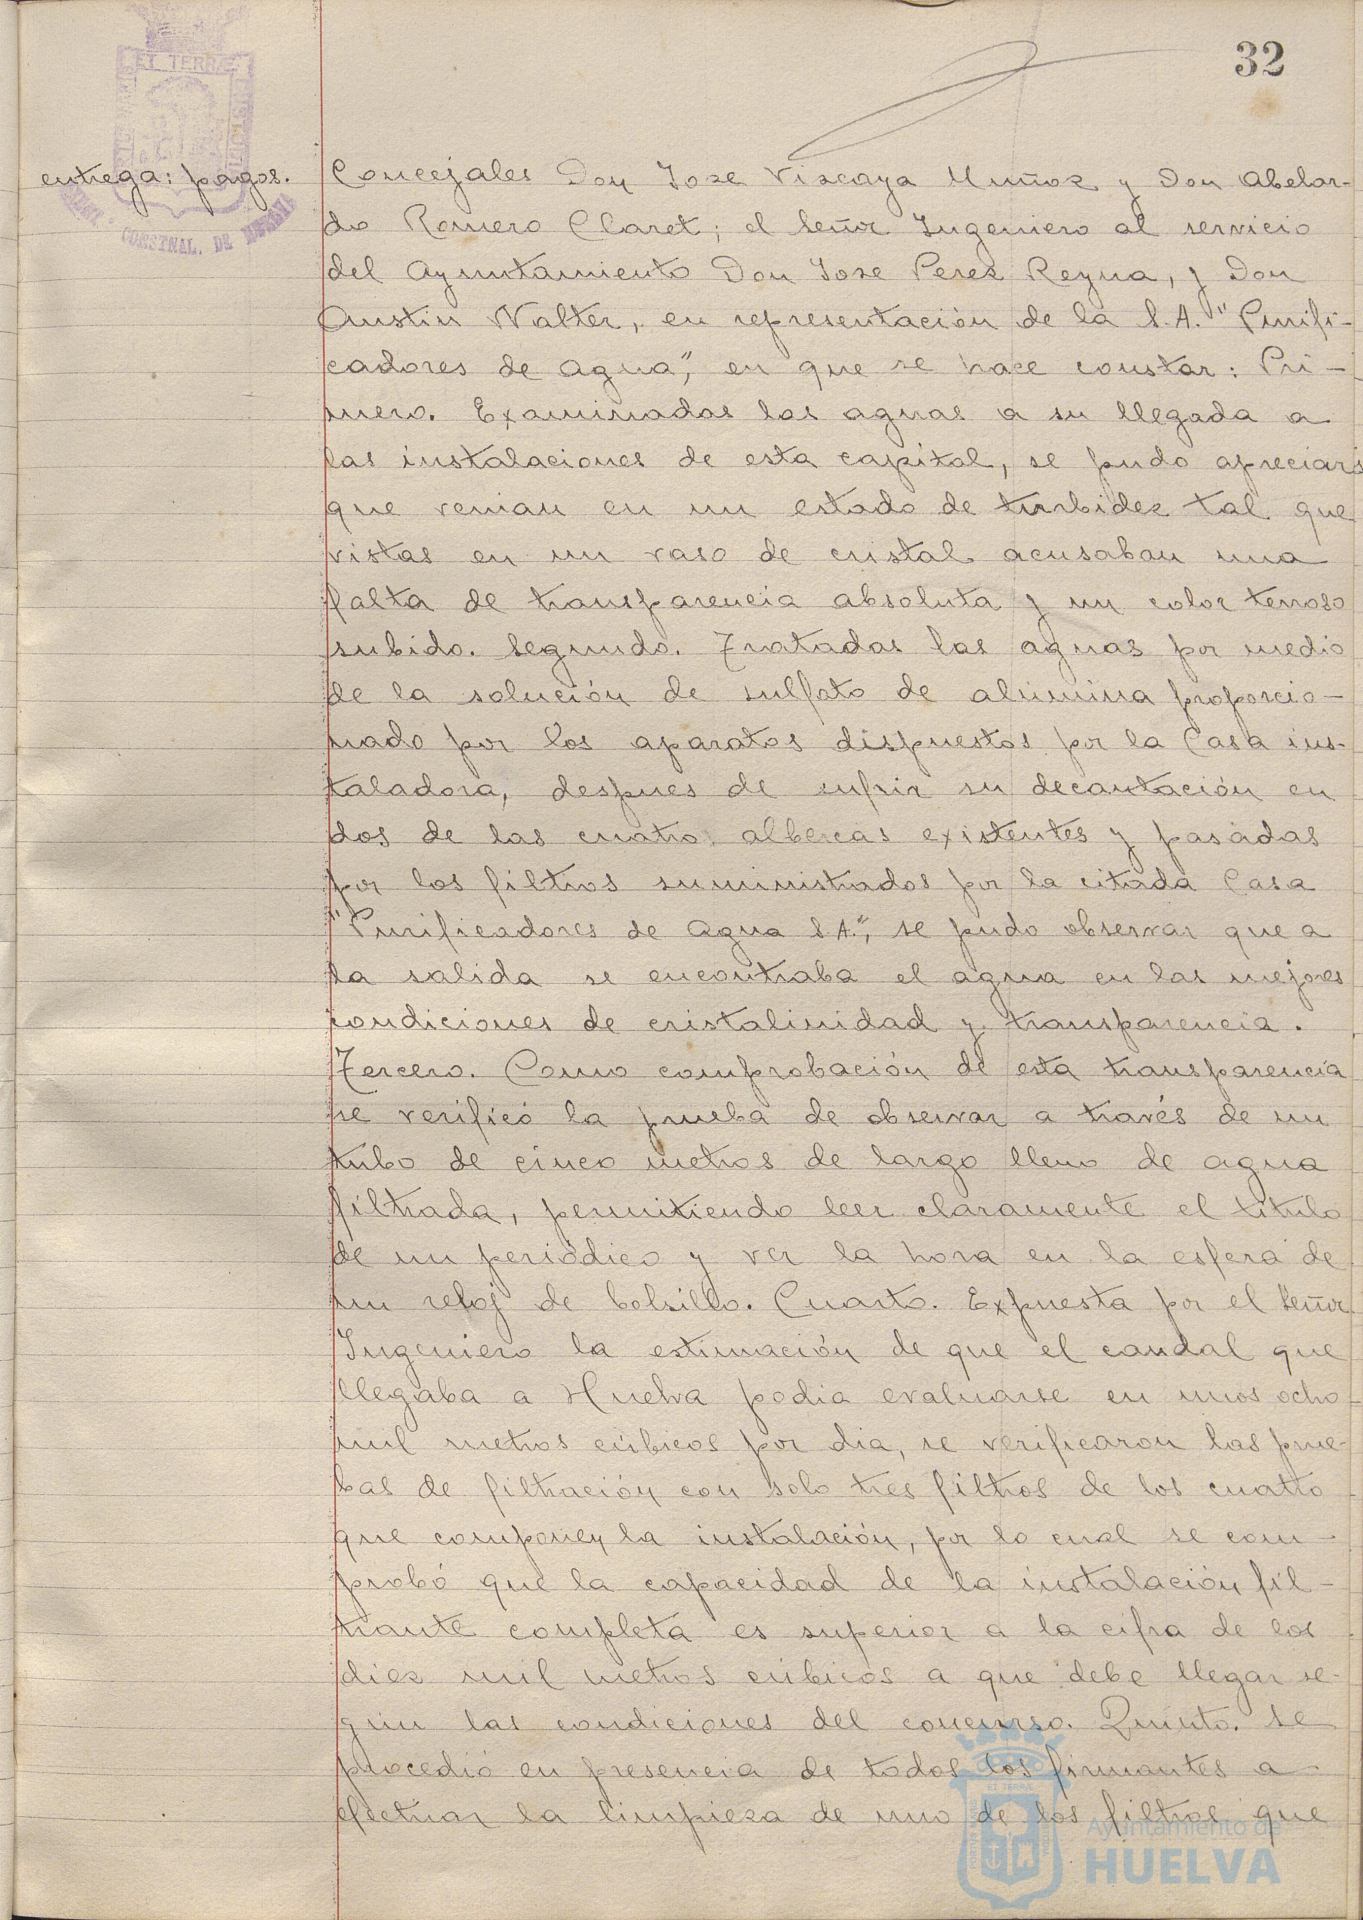 32
ET TERRÆ
CONSTNAL. DE HUELVA
entrega: pagos.
Concejales Don Jose Viscaya Muñoz y Don Abelar-
do Romero Claret; el Señor Ingeniero al servicio
del Ayuntamiento Don Jose Perez Reyna, y Don
Austin Walter, en representación de la S.A. "Purifi-
cadores de Agua", en que se hace constar: Pri-
mero. Examinadas las aguas a su llegada a
las instalaciones de esta capital, se pudo apreciar
que venian en un estado de turbidez tal que
vistas en un vaso de cristal acusaban una
falta de transparencia absoluta y un color terroso
subido. Segundo. Tratadas las aguas por medio
de la solución de sulfato de alumina proporcio-
nado por los aparatos dispuestos por la Casa ins-
taladora, despues de sufrir su decantación en
dos de las cuatro albercas existentes y pasadas
por los filtros suministrados por la citada Casa
"Purificadores de Agua S.A.", se pudo observar que a
la salida se encontraba el agua en las mejores
condiciones de cristalinidad y transparencia.
Tercero. Como comprobación de esta transparencia
se verificó la prueba de observar a través de un
tubo de cinco metros de largo lleno de agua
filtrada, permitiendo leer claramente el título
de un periódico y ver la hora en la esfera de
un reloj de bolsillo. Cuarto. Expuesta por el Señor
Ingeniero la estimación de que el caudal que
llegaba a Huelva podia evaluarse en unos ocho
mil metros cúbicos por dia, se verificaron las prue-
bas de filtración con solo tres filtros de los cuatro
que componen la instalación, por lo cual se com-
probó que la capacidad de la instalación fil-
trante completa es superior a la cifra de los
diez mil metros cúbicos a que debe llegar se-
gun las condiciones del concurso. Quinto. Se
procedió en presencia de todos los firmantes a
efectuar la limpieza de uno de los filtros que
Ayuntamiento de
HUELVA